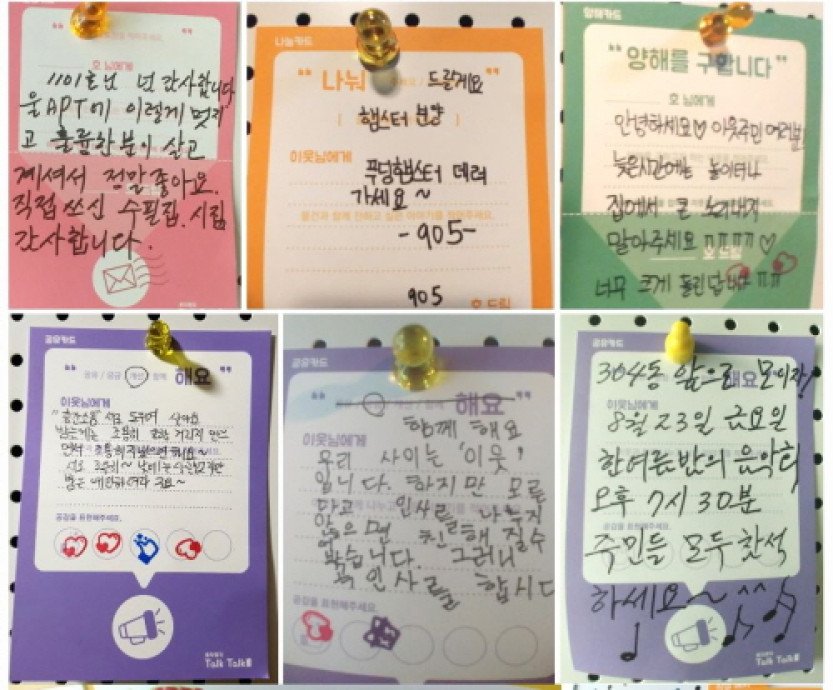 호 님에게
1101호님 넘 감사합니다
울APT에 이렇게 멋지
고 훌륭한분이 살고
계셔서 정말좋아요.
직접 쓰신 수필집. 시집
감사합니다.
나눔카드
"나눠 드릴게요
햄스터 분양
이웃님에게
푸딩햄스터 데려
가세요~
물건과 함께 전하고 싶은 이야기를 적어주세요.
-905-
905 호 드림
양해카드
"양해를 구합니다"
호 님에게
안녕하세요♡ 이웃주민 여러분!
늦은시간에는 놀이터나
집에서 큰 소리내지
말아주세요 ㅠㅠㅠㅠ ♡
호 드림
너무 크게 들린답니다 ㅠㅠ
공유카드
"공유 / 궁금 / 개선 / 함께 해요"
이웃님에게
"층간소음" 서로 도우며 살아요
밤늦게는 조용히
공감을 표현해주세요.
Talk Talk
공유카드
해요"
함께 해요
이웃님에게
우리 사이는 '이웃'
입니다. 하지만 모른
다고 인사를 나누지
않으면 친해질수
없습니다. 그러니
꼭 인사를 합시다
공감을 표현해주세요.
Talk Talk
공유카드
304동 앞으로 모이자!
해요"
이웃님에게
8월 23일 금요일
한여름밤의 음악회
오후 7시 30분
주민들 모두 참석
하세요~^^
Talk Talk